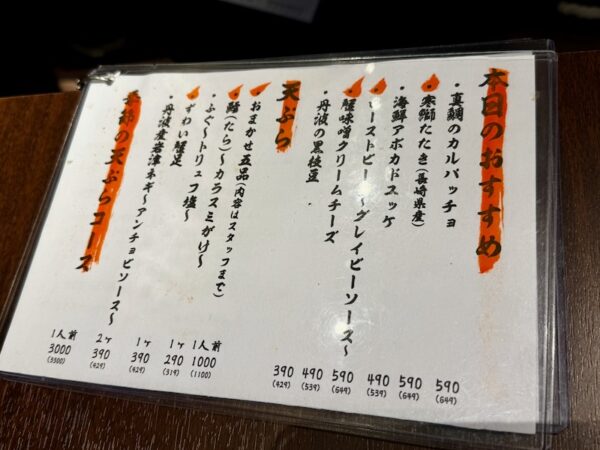 本日のおすすめ
・真鯛のカルパッチョ
590
(649)
・寒鰤たたき(長崎県産)
590
(649)
・海鮮アボカドユッケ
490
(539)
・ローストビーフ〜グレイビーソース〜
590
(649)
・蟹味噌クリームチーズ
490
(539)
・丹波の黒枝豆
390
(429)
天ぷら
・おまかせ五品(内容はスタッフまで)
・鱈(たら)〜カラスミがけ〜
・ふぐ〜トリュフ塩〜
・ずわい蟹足
・丹波産岩津ネギ〜アンチョビソース〜
1人前
1000
(1100)
1ヶ
290
(319)
1ヶ
390
(429)
2ヶ
390
(429)
季節の天ぷらコース
1人前
3000
(3300)